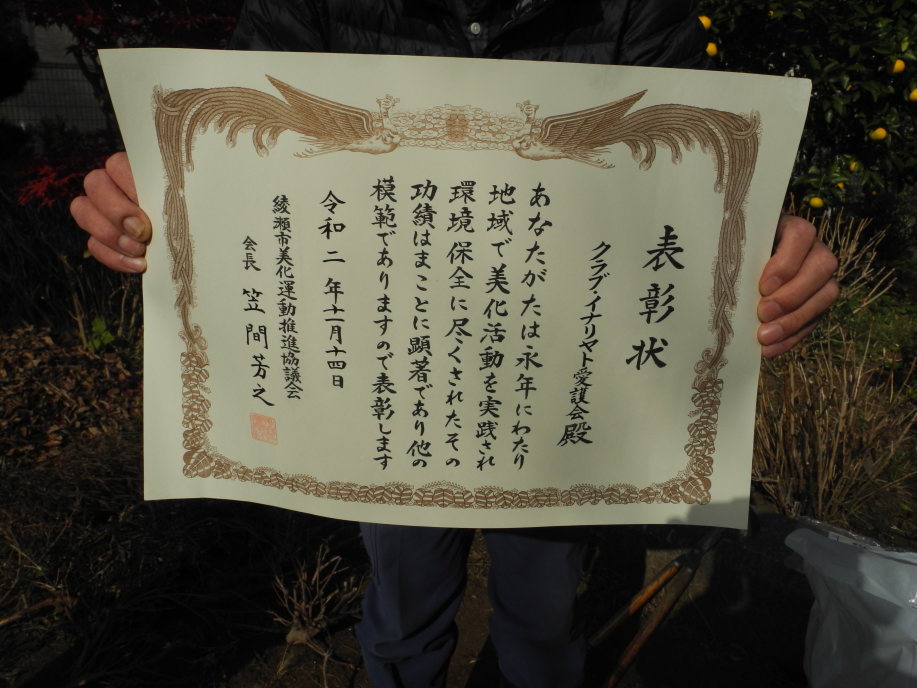 表彰状
クラブ・イナリヤト愛護会殿
あなたがたは永年にわたり
地域で美化活動を実践され
環境保全に尽くされたその
功績はまことに顕著であり他の
模範でありますので表彰します
令和二年十一月十四日
綾瀬市美化運動推進協議会
会長 笠間芳之